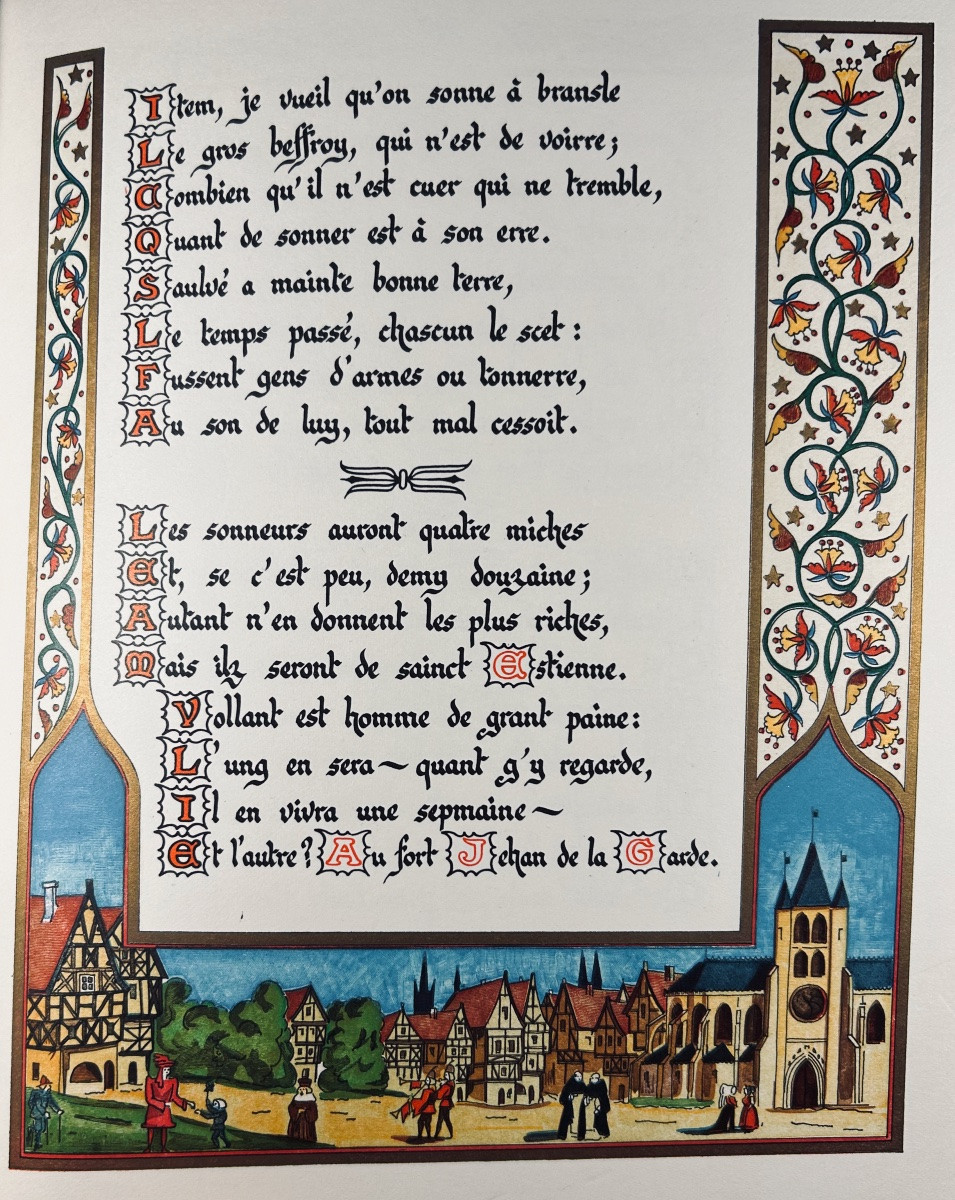 Item, je vueil qu'on sonne à bransle
Le gros beffroy, qui n'est de voirre;
Combien qu'il n'est cuer qui ne tremble,
Quant de sonner est à son erre.
Saulvé a mainte bonne terre,
Le temps passé, chascun le scet:
Fussent gens d'armes ou tonnerre,
Au son de luy, tout mal cessoit.
Les sonneurs auront quatre miches
Et, se c'est peu, demy douzaine;
Autant n'en donnent les plus riches,
Mais ilz seront de sainct Estienne.
Vollant est homme de grant paine:
L'ung en sera~ quant g'y regarde,
Il en vivra une sepmaine~
Et l'autre? Au fort Jehan de la Garde.